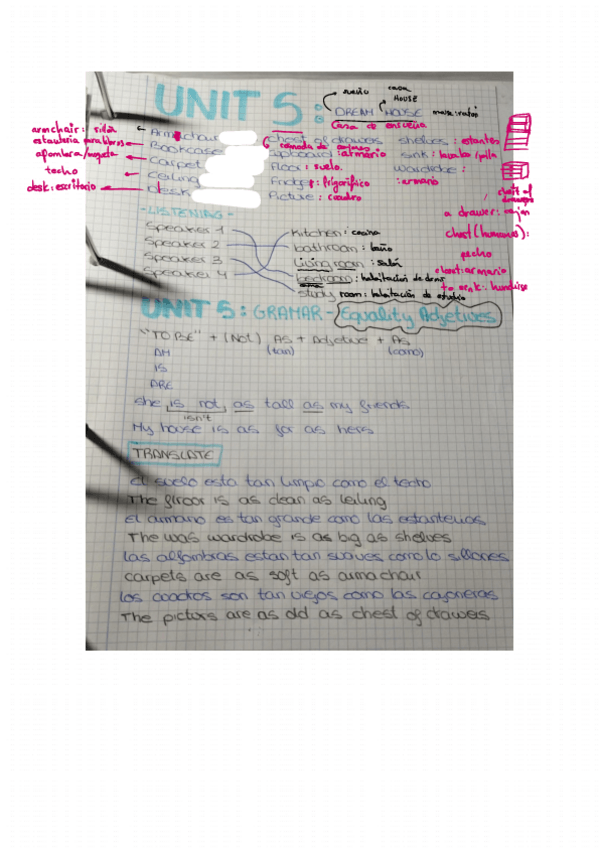 sueño casa
HOUSE
UNIT 5: DREAM HOUSE mouse: ratón
Casa de ensueña
armchair: silla Armchair chest of drawers shelves: estantes
estantería para libros Bookcase cómoda de cajones
Cupboard: armario sink: lavabo/pila
alfombra/moqueta Carpet Floor: suelo. wardrobe:
techo Ceiling Fridge: frigorífico :armario
desk: escritorio Desk Picture: cuadro chest of drawers
a drawer: cajón
- LISTENING - chest (humanos):
Speaker 1 Kitchen: cocina pecho
Speaker 2 bathroom: baño
Speaker 3 Living room: salón closet: armario
Speaker 4 bedroom: habitación de dormir to sink: hundirse
study room: habitación de estudio
UNIT 5: GRAMAR - Equality Adjetives
"TO BE" + (Not) AS + Adjetive + AS
AM (tan) (como)
IS
ARE
she is not, as tall as my friends
isn't
My house is as far as hers
TRANSLATE
el suelo esta tan limpio como el techo
The floor is as clean as ceiling
el armario es tan grande como las estanterias
The was wardrobe is as big as shelves
las alfombras estan tan suaves como lo sillones
carpets are as soft as armachair
los cuadros son tan viejos como las cajoneras
The picturs are as old as chest of drawes